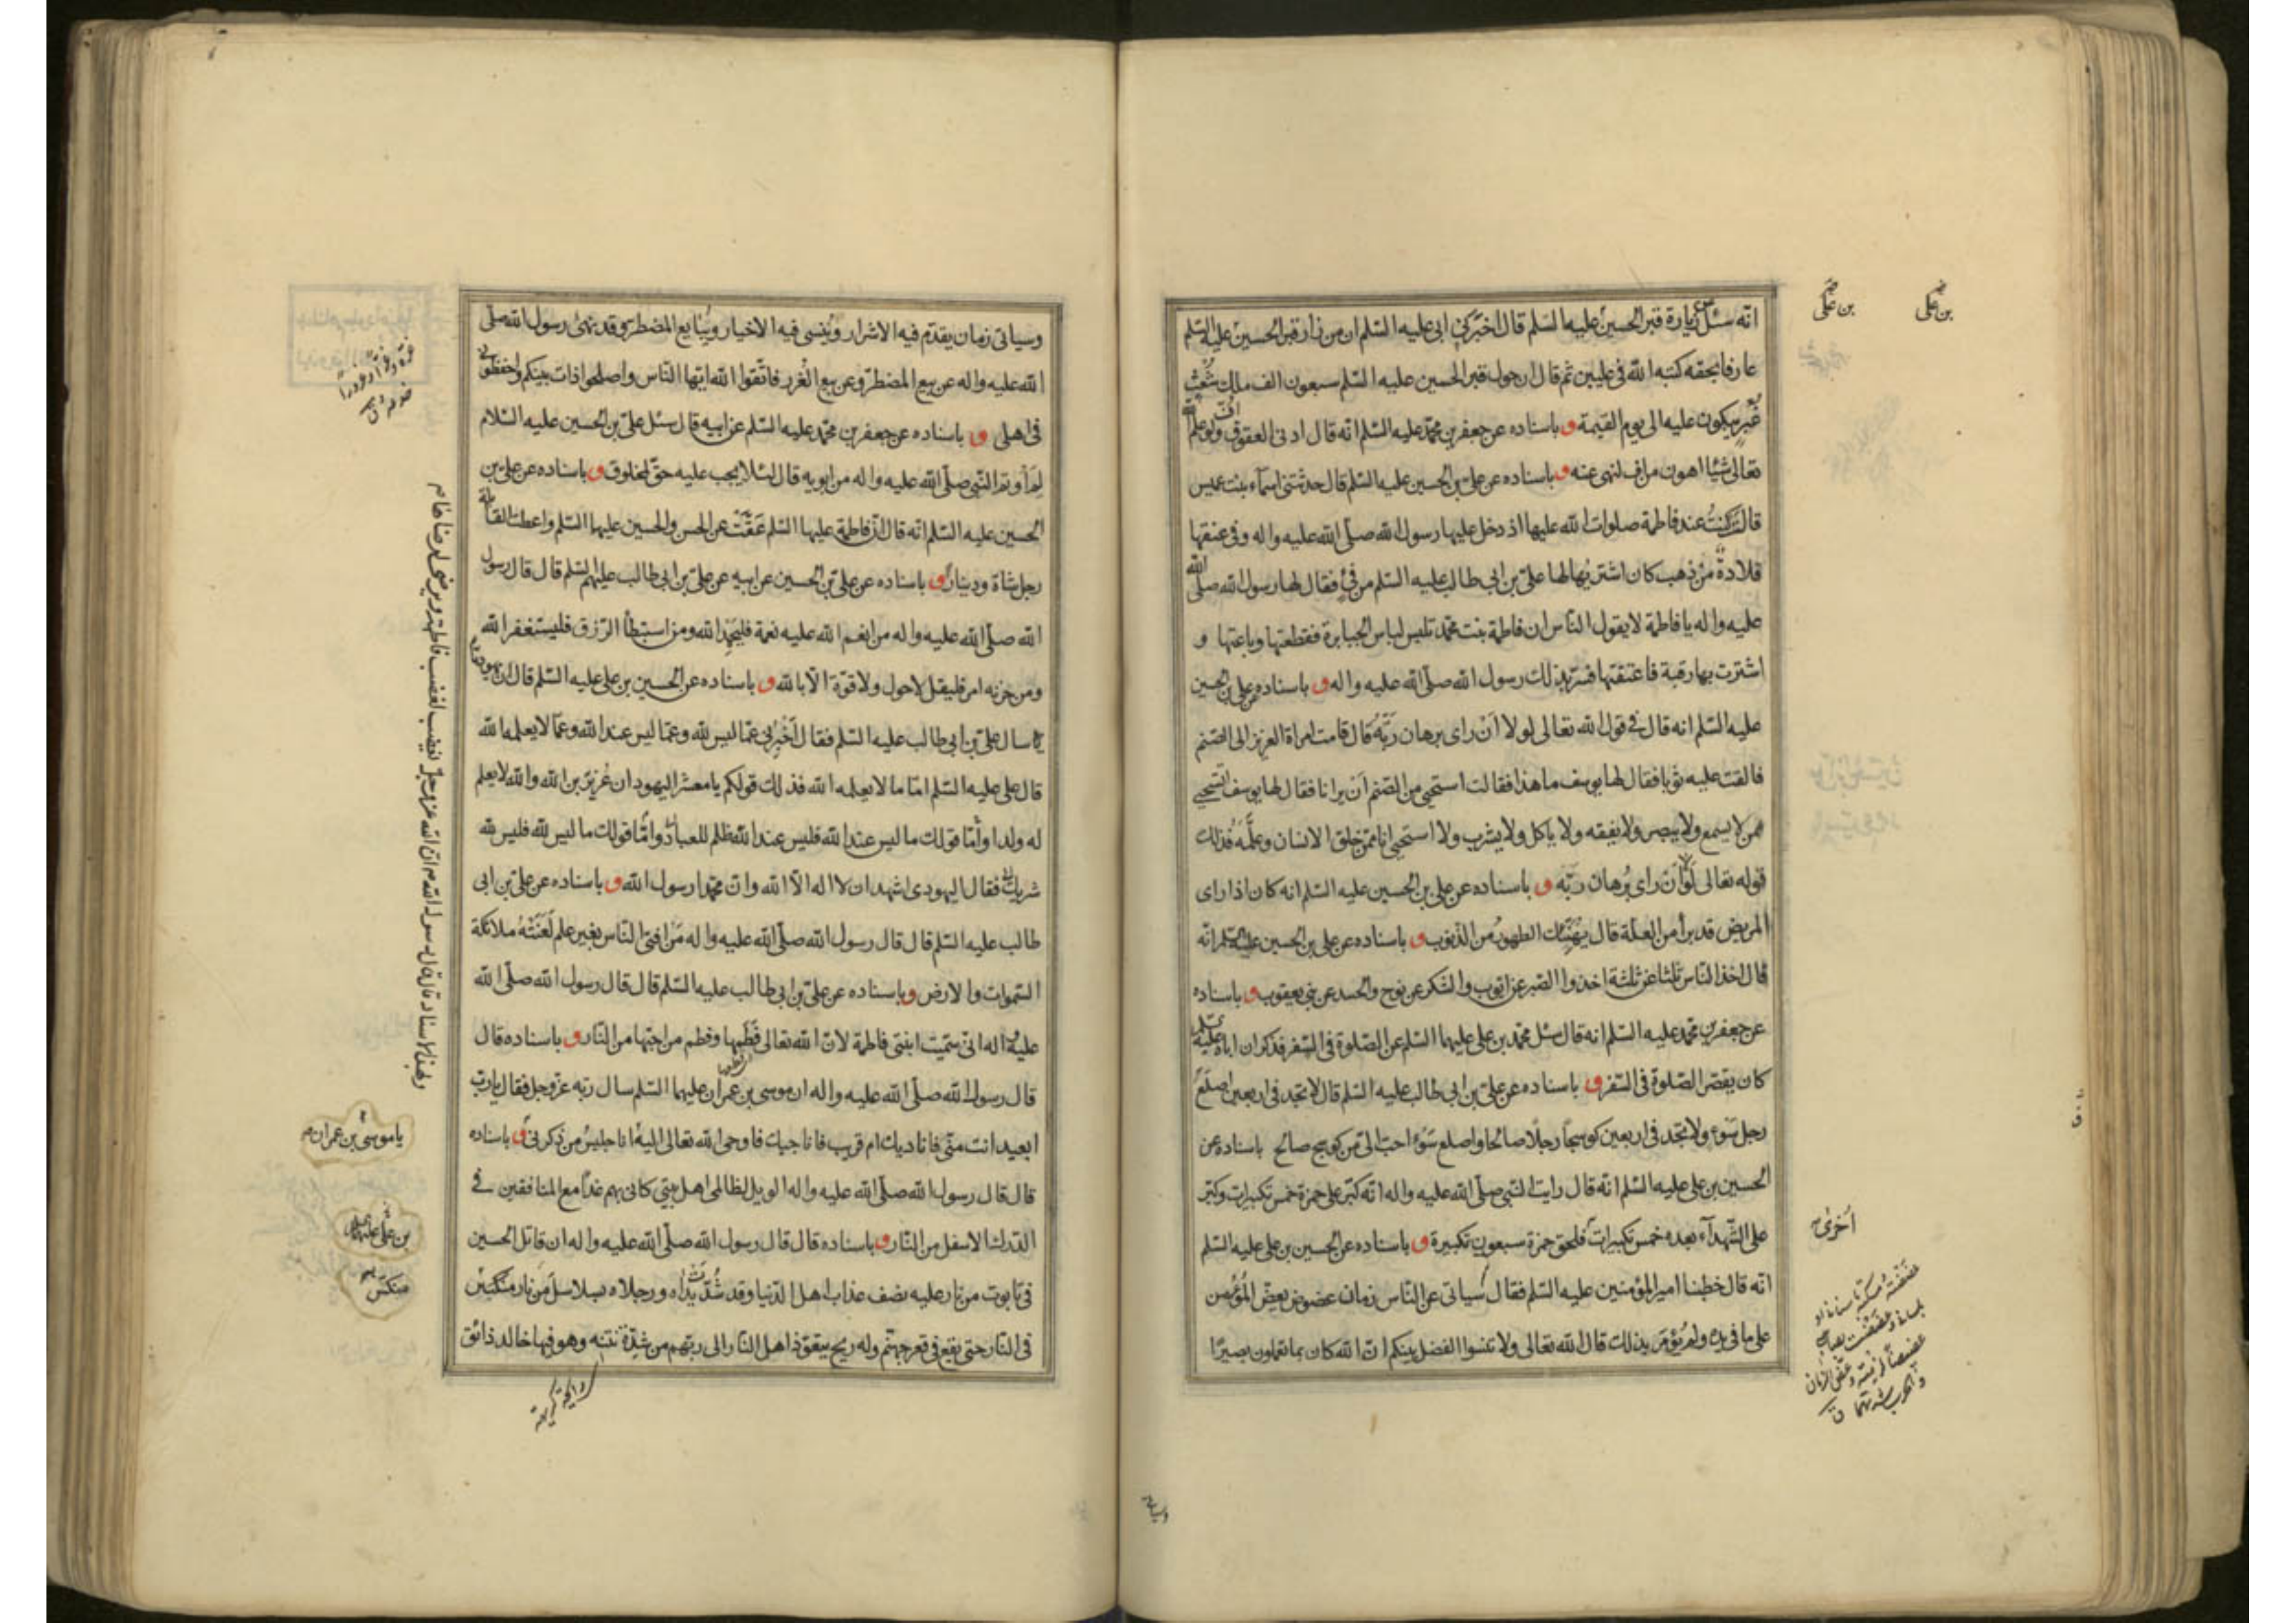 انه سئل عن زيارة قبر الحسين عليه السلم قال اخبرني ابي عليه السلم ان من زار قبر الحسين عليه السلم
عارفا بحقه كتبه الله في عليين ثم قال ان حول قبر الحسين عليه السلم سبعون الف ملك شعث
غبر يبكون عليه الى يوم القيمة و باسناده عن جعفر بن محمد عليه السلم انه قال ادنى العقوق اف ولو علم الله
تعالى شيئا اهون من اف لنهى عنه و باسناده عن علي بن الحسين عليه السلم قال حدثتني اسماء بنت عميس
قالت كنت عند فاطمة صلوات الله عليها اذ دخل عليها رسول الله صلى الله عليه واله وفي عنقها
قلادة من ذهب كان اشتريها لها علي بن ابي طالب عليه السلم من فئ فقال لها رسول الله صلى الله
عليه واله يا فاطمة لا يقول الناس ان فاطمة بنت محمد تلبس لباس الجبابرة فقطعتها وباعتها و
اشترت بها رقبة فاعتقتها فسر بذلك رسول الله صلى الله عليه واله و باسناده عن علي بن الحسين
عليه السلم انه قال في قول الله تعالى لولا ان راى برهان ربه قال قامت امراة العزيز الى الصنم
فالقت عليه ثوبا فقال لها يوسف ما هذا فقالت استحيي من الصنم ان يرانا فقال لها يوسف اتستحيي
ممن لا يسمع ولا يبصر ولا يفقه ولا ياكل ولا يشرب ولا استحيي انا ممن خلق الانسان وعلمه فذلك
قوله تعالى لولا ان راى برهان ربه و باسناده عن علي بن الحسين عليه السلم انه كان اذا راى
المريض قد برأ من العلة قال يهنئك الطهور من الذنوب و باسناده عن علي بن الحسين عليه السلم انه
قال اخذ الناس ثلثا عن ثلثة اخذوا الصبر عن ايوب والشكر عن نوح والحسد عن بني يعقوب و باسناده
عن جعفر بن محمد عليه السلم انه قال سئل محمد بن علي عليهما السلم عن الصلوة في السفر فذكر ان اباه عليه السلم
كان يقصر الصلوة في السفر و باسناده عن علي بن ابي طالب عليه السلم قال لا تجد في اربعين اصلع
رجل سوء ولا تجد في اربعين كوسجا رجلا صالحا واصلع سوء احب الي من كوسج صالح باسناده عن
الحسين بن علي عليه السلم انه قال رايت النبي صلى الله عليه واله انه كبر على حمزة خمس تكبيرات وكبر
على الشهداء بعده خمس تكبيرات فلحق حمزة سبعون تكبيرة و باسناده عن الحسين بن علي عليه السلم
انه قال خطبنا امير المؤمنين عليه السلم فقال سياتي على الناس زمان عضوض يعض المؤمن
على ما في يده ولم يؤمر بذلك قال الله تعالى ولا تنسوا الفضل بينكم ان الله كان بما تعملون بصيرا
بن علي
بن علي
اخرى
وسياتي
وسياتي زمان يقدم فيه الاشرار وينسى فيه الاخيار ويبايع المضطر وقد نهى رسول الله صلى
الله عليه واله عن بيع المضطر وعن بيع الغرر فاتقوا الله ايها الناس واصلحوا ذات بينكم واحفظوني
في اهلي و باسناده عن جعفر بن محمد عليه السلم عن ابيه قال سئل علي بن الحسين عليه السلام
لم اوتم النبي صلى الله عليه واله من ابويه قال لئلا يجب عليه حق لمخلوق و باسناده عن علي بن
الحسين عليه السلم انه قال ان فاطمة عليها السلم عقت عن الحسن والحسين عليهما السلم واعطت القابلة
رجل شاة ودينار و باسناده عن علي بن الحسين عن ابيه عن علي بن ابي طالب عليهم السلم قال قال رسول
الله صلى الله عليه واله من انعم الله عليه نعمة فليحمد الله ومن استبطأ الرزق فليستغفر الله
ومن حزنه امر فليقل لا حول ولا قوة الا بالله و باسناده عن الحسين بن علي عليه السلم قال ان يهوديا
سال علي بن ابي طالب عليه السلم فقال اخبرني عما ليس لله وعما ليس عند الله وعما لا يعلمه الله
قال علي عليه السلم اما ما لا يعلمه الله فذلك قولكم يا معشر اليهود ان عزير بن الله والله لا يعلم
له ولدا واما قولك ما ليس عند الله فليس عند الله ظلم للعباد واما قولك ما ليس لله فليس لله
شريك فقال اليهودي اشهد ان لا اله الا الله وان محمدا رسول الله و باسناده عن علي بن ابي
طالب عليه السلم قال قال رسول الله صلى الله عليه واله من افتى الناس بغير علم لعنته ملائكة
السموات والارض و باسناده عن علي بن ابي طالب عليه السلم قال قال رسول الله صلى الله
عليه واله اني سميت ابنتي فاطمة لان الله تعالى فطمها وفطم من احبها من النار و باسناده قال
قال رسول الله صلى الله عليه واله ان موسى بن عمران عليهما السلم سال ربه عز وجل فقال يا رب
ابعيد انت مني فاناديك ام قريب فاناجيك فاوحى الله تعالى اليه انا جليس من ذكرني و باسناده
قال قال رسول الله صلى الله عليه واله الويل لظالمي اهل بيتي كاني بهم غدا مع المنافقين في
الدرك الاسفل من النار و باسناده قال قال رسول الله صلى الله عليه واله ان قاتل الحسين
في تابوت من نار عليه نصف عذاب اهل الدنيا وقد شدت يداه ورجلاه بسلاسل من نار منكس
في النار حتى يقع في قعر جهنم وله ريح يتعوذ اهل النار الى ربهم من شدة نتنه وهو فيها خالد ذائق
وبهذا الاسناد قال قال رسول الله ان الله عز وجل يغضب لغضب فاطمة ويرضى لرضاها
يا موسى بن عمران
بن علي عليهما السلم
منكس
رائحة كريهة